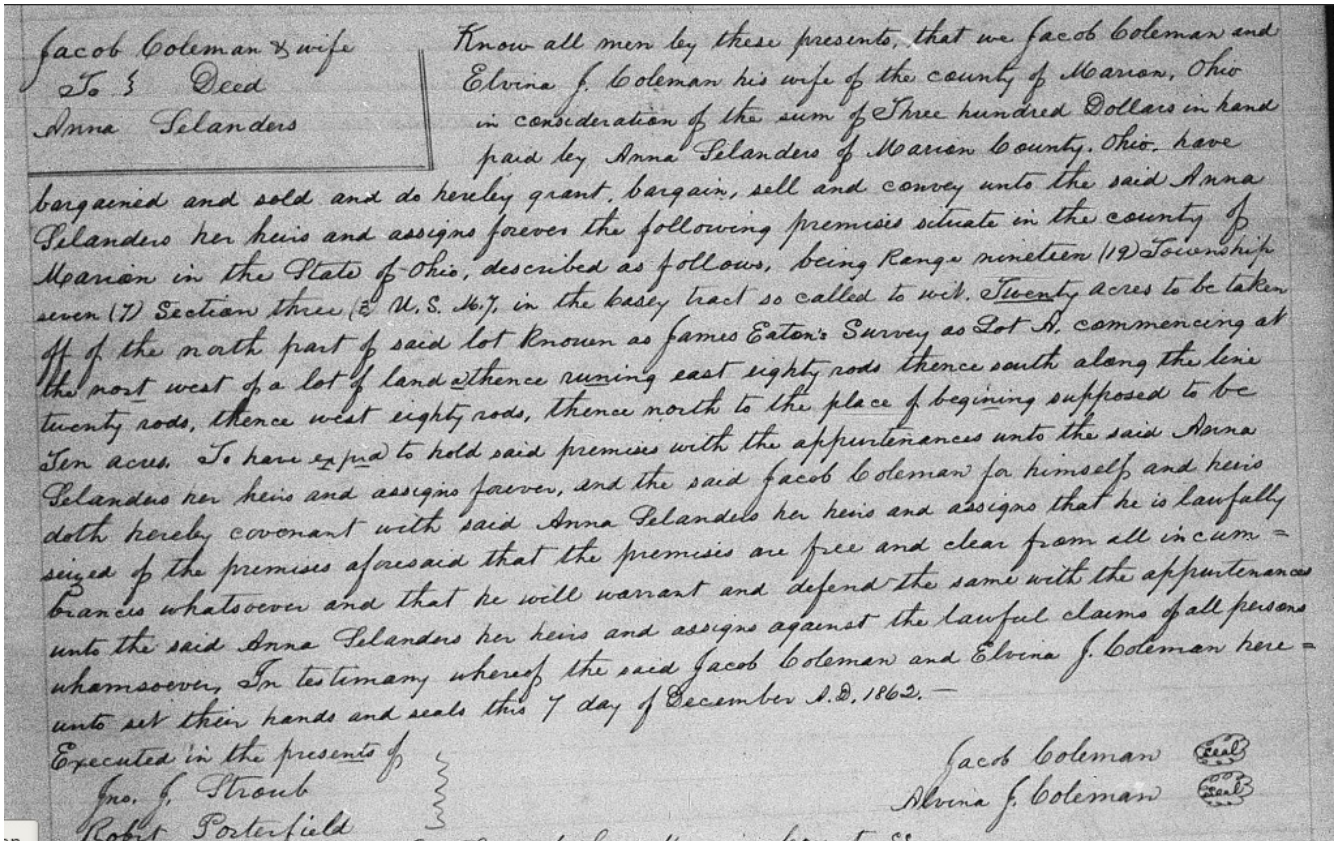 Jacob Coleman & wife
To } Deed
Anna Selanders
Know all men by these presents, that we Jacob Coleman and
Elvina J. Coleman his wife of the county of Marion, Ohio
in consideration of the sum of Three hundred Dollars in hand
paid by Anna Selanders of Marion County, Ohio, have
bargained and sold and do hereby grant, bargain, sell and convey unto the said Anna
Selanders her heirs and assigns forever the following premises situate in the county of
Marion in the State of Ohio, described as follows, being Range nineteen (19) Township
seven (7) Section three (3 U. S. M.), in the Casey tract so called to wit. Twenty acres to be taken
off of the north part of said lot Known as James Eaton's Survey as Lot A. commencing at
the nort west of a lot of land thence runing east eighty rods thence south along the line
twenty rods, thence west eighty rods, thence north to the place of begining supposed to be
Ten acres. To have to hold said premises with the appurtenances unto the said Anna
Selanders her heirs and assigns forever, and the said Jacob Coleman for himself and heirs
doth hereby covenant with said Anna Selanders her heirs and assigns that he is lawfully
seized of the premises aforesaid that the premises are free and clear from all incum=
brances whatsoever and that he will warrant and defend the same with the appurtenances
unto the said Anna Selanders her heirs and assigns against the lawful claims of all persons
whamsoever, In testimany whereof the said Jacob Coleman and Elvina J. Coleman here=
unto set their hands and seals this 7 day of December A.D. 1862. —
Executed in the presents of
Jno. J. Stroub
Robt Porterfield
Jacob Coleman seal
Alvina J. Coleman seal